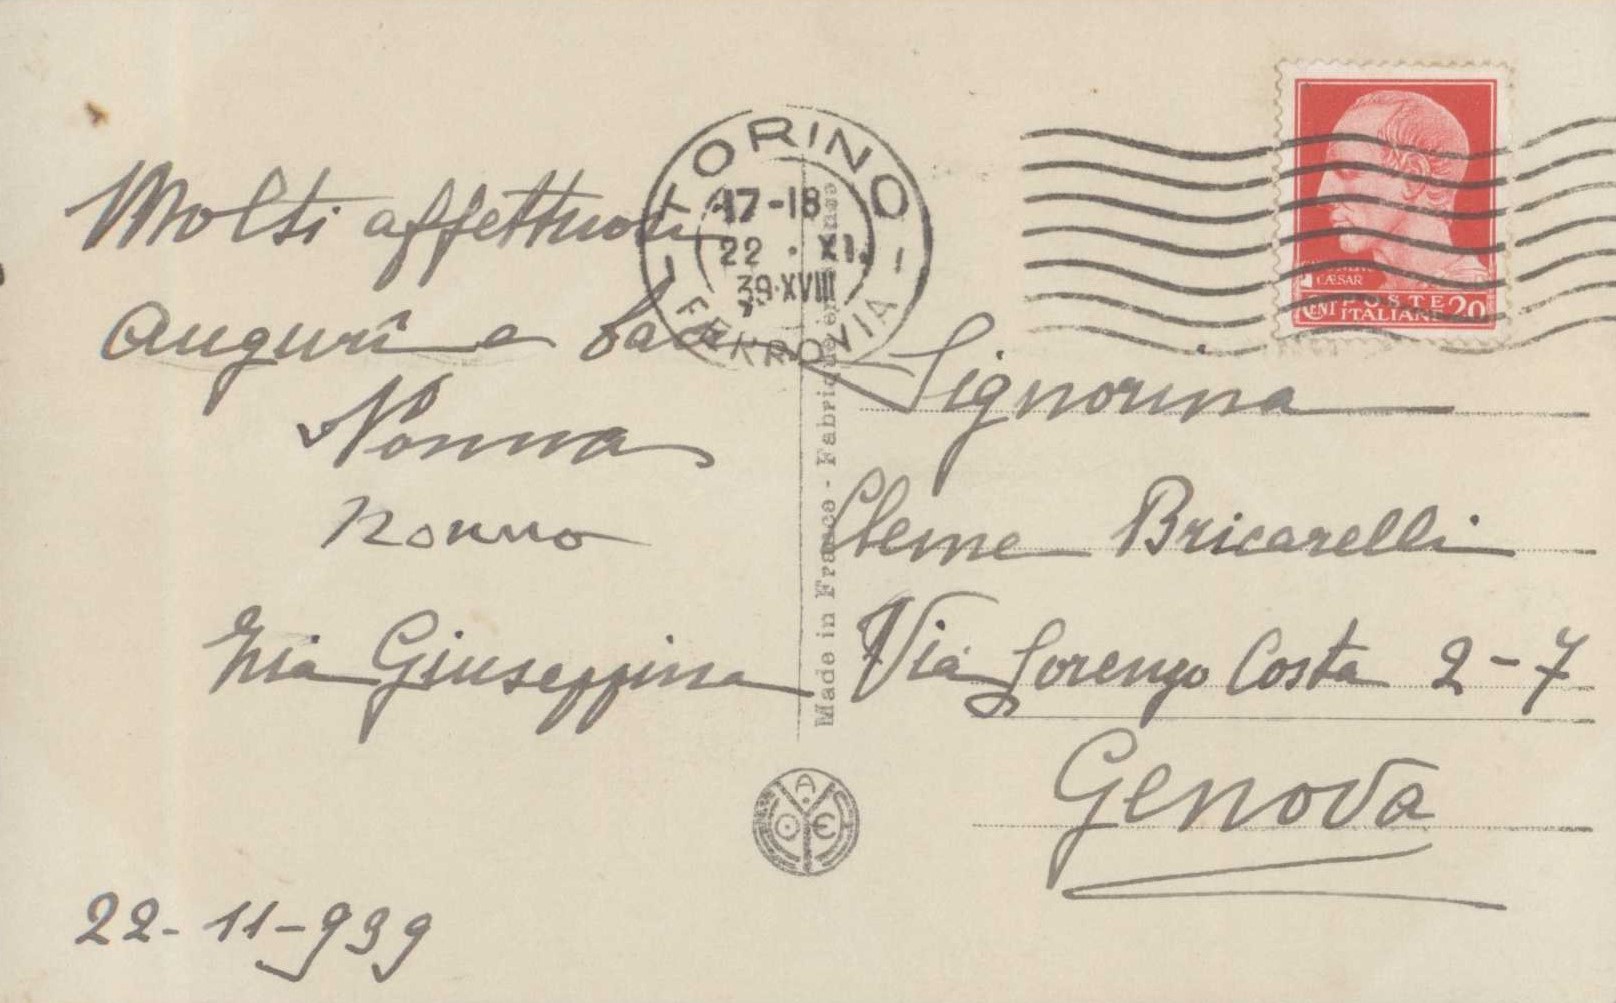 Molti affettuosi
auguri e baci
Nonna
Nonno
Zia Giuseppina
22-11-939
TORINO
17-18
22 · XI
39·XVIII
FERROVIA
Made in France - Fabriqué en France
CÆSAR
CENT POSTE 20
ITALIANE
Signorina
Bricarelli
Via Lorenzo Costa 2-7
Genova